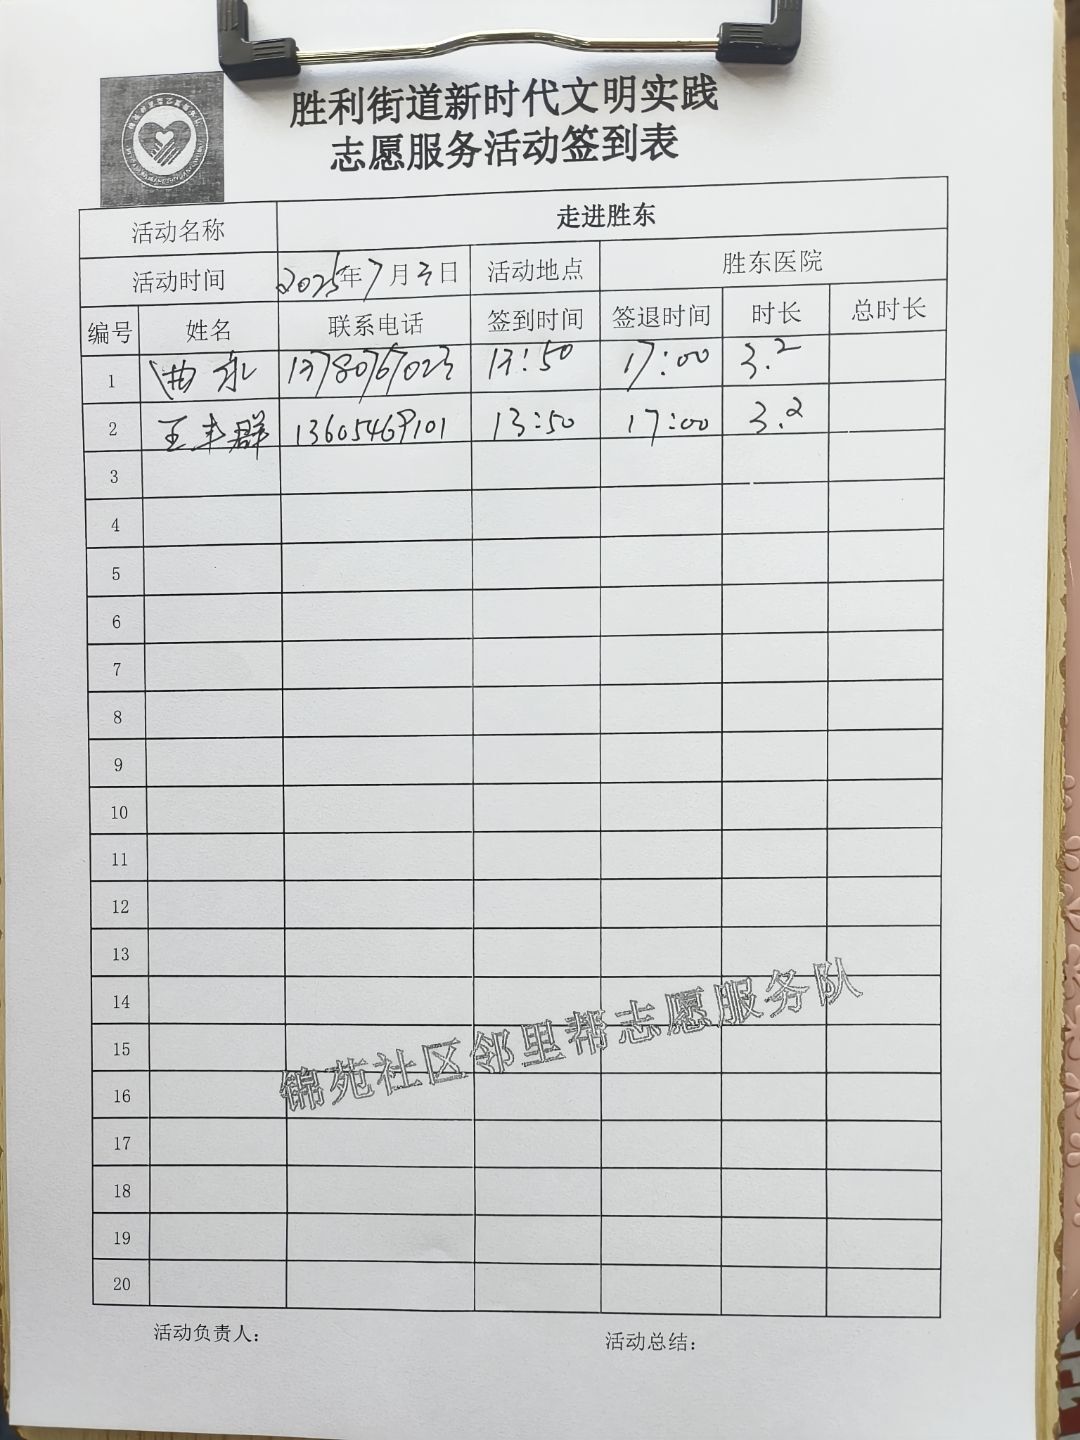 胜利街道新时代文明实践
志愿服务活动签到表
活动名称 走进胜东
活动时间 2025年7月3日 活动地点 胜东医院
编号 姓名 联系电话 签到时间 签退时间 时长 总时长
1 曲永 13780767023 13:50 17:00 3.2
2 王丰群 13605469101 13:50 17:00 3.2
3
4
5
6
7
8
9
10
11
12
13
14
15
16
17
18
19
20
锦苑社区邻里帮志愿服务队
活动负责人： 活动总结：